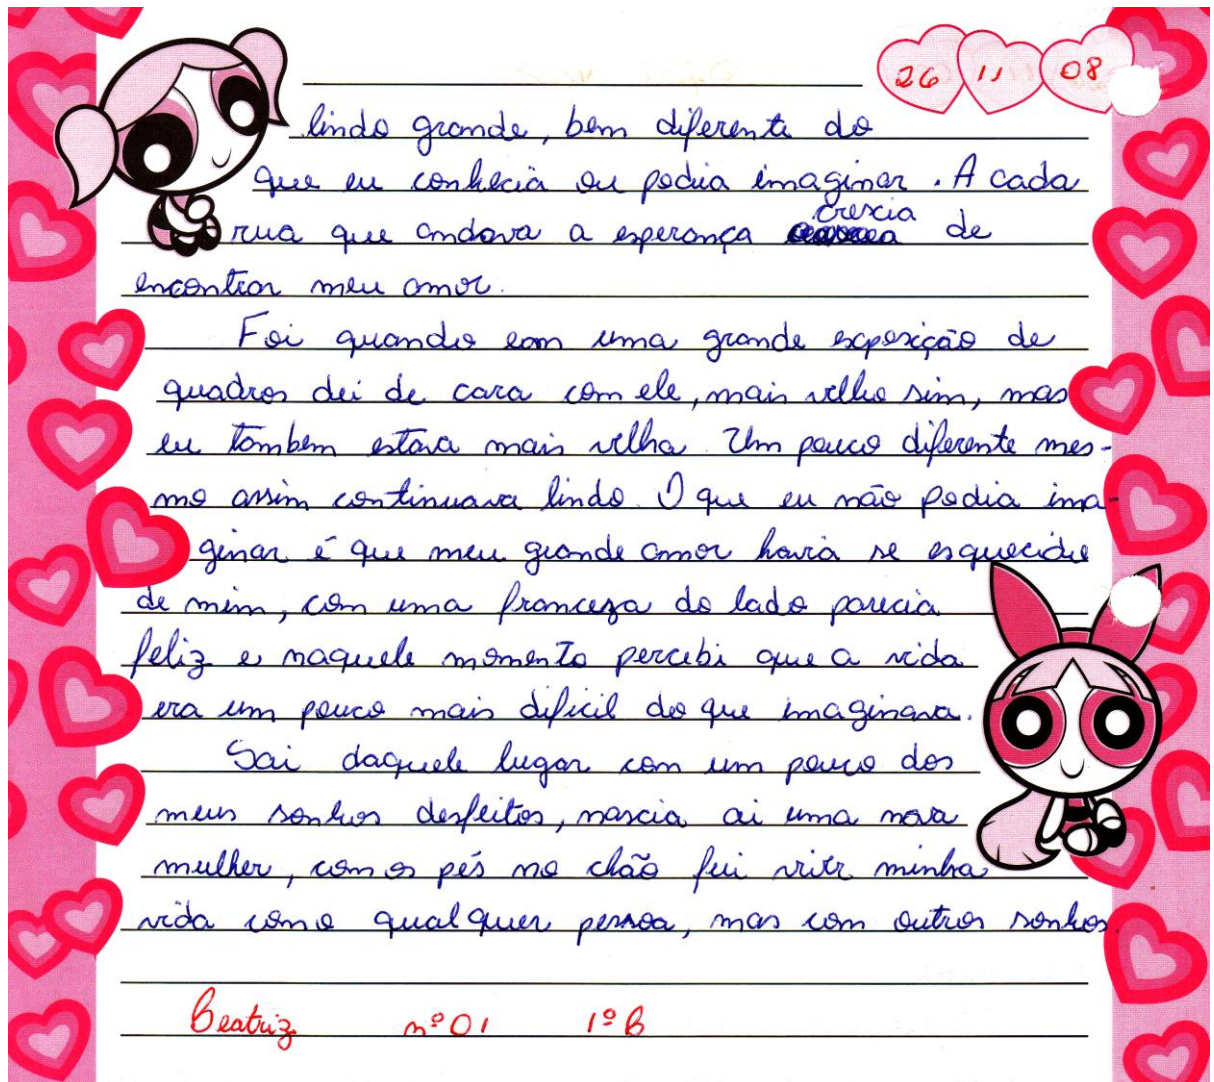 26 11 08
lindo grande, bem diferente do
que eu conhecia ou podia imaginar. A cada
crescia
rua que andava a esperança de
encontrar meu amor.
Foi quando eom uma grande exposição de
quadros dei de cara com ele, mais velho sim, mas
eu tambem estava mais velha. Um pouco diferente mes-
mo assim continuava lindo. O que eu não podia ima-
ginar é que meu grande amor havia se esquecido
de mim, com uma franceza do lado parecia
feliz e naquele momento percebi que a vida
era um pouco mais dificil do que imaginava.
Sai daquele lugar com um pouco dos
meus sonhos desfeitos, nascia ai uma nova
mulher, com os pés no chão fui minha
vida como qualquer pessoa, mas com outros sonhos.
Beatriz nº 01 1º B